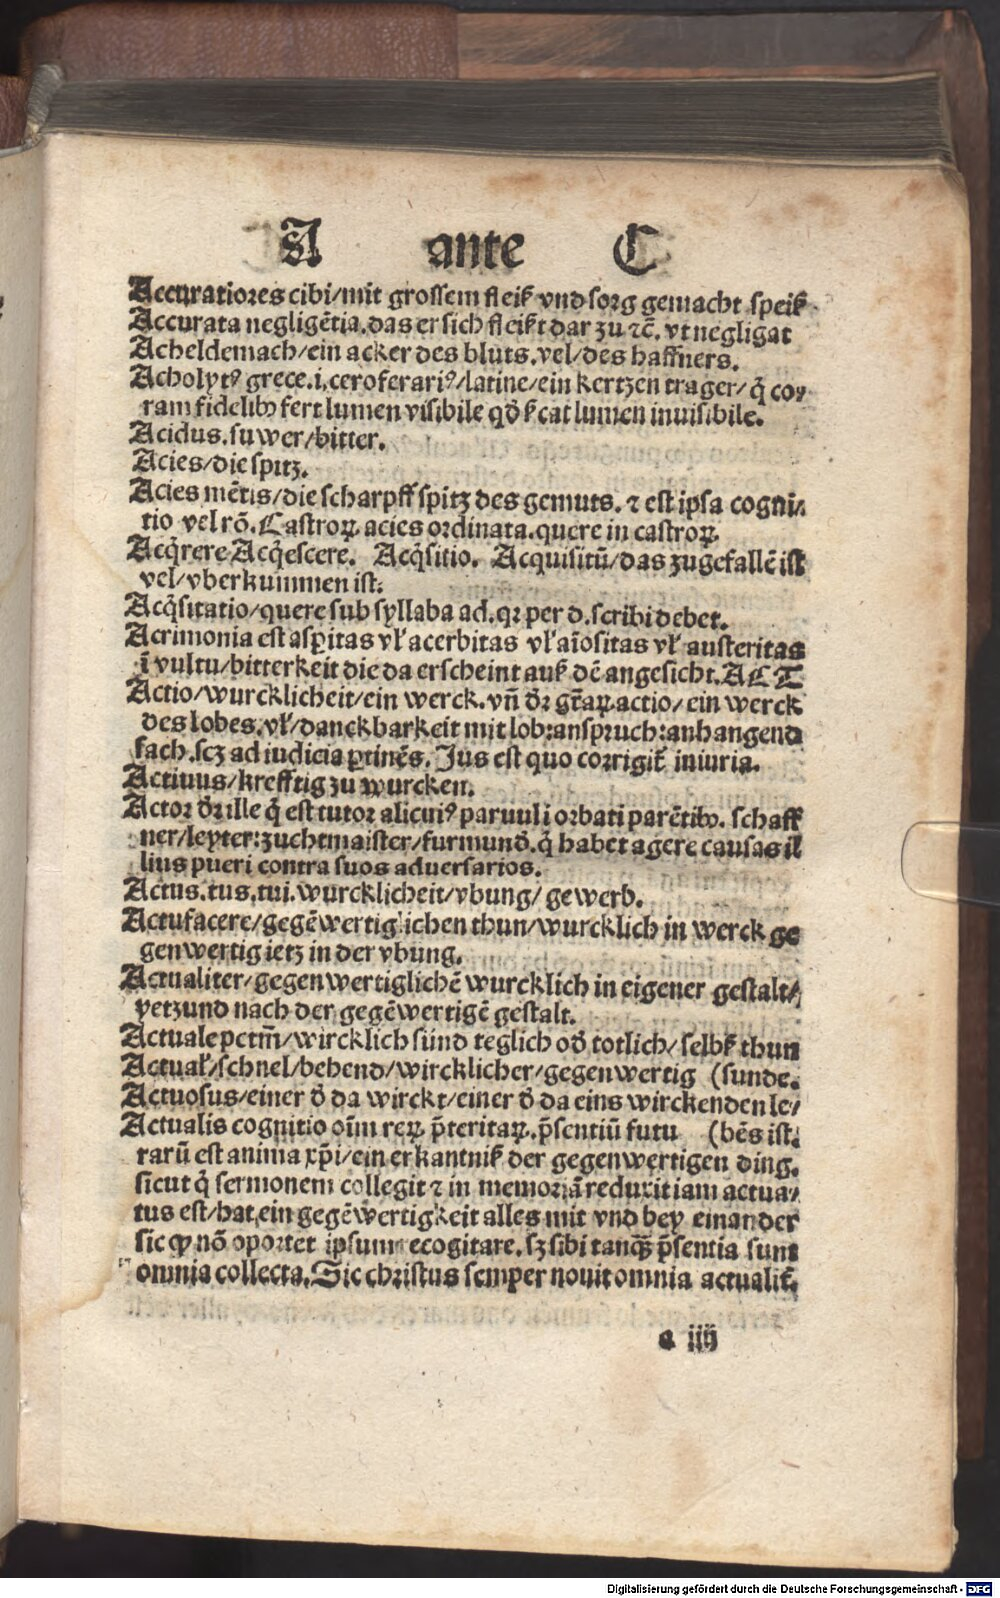 A ante C
Accuratiores cibi/mit grossem fleiß vnd sorg gemacht speiß
Accurata negligẽtia.das er sich fleißt dar zu ⁊c̃. vt negligat
Acheldemach/ein acker des bluts.vel/des haffners.
Acholytꝰ grece.i.ceroferariꝰ/latine/ein kertzen trager/ q̇ co⸗
ram fidelibꝰ fert lumen visibile qð ßcat lumen inuisibile.
Acidus.suwer/bitter.
Acies/die spitz.
Acies mẽtis/die scharpff spitz des gemuts. ⁊ est ipsa cogni⸗
tio vel rõ. Castroꝝ acies ordinata.quere in castroꝝ.
Acq̇rere Acq̇escere. Acq̇sitio. Acquisitũ/das zugefallẽ ist
vel/vberkummen ist.
Acq̇sitatio/quere sub syllaba ad.qꝛ per d.scribi debet.
Acrimonia est asp̱itas vł acerbitas vł aĩositas vł austeritas
ĩ vultu/bitterkeit die da erscheint auß dẽ angesicht.ACT
Actio/wurcklicheit/ein werck.vñ ðꝛ gr̃aꝝ.actio/ein werck
des lobes.vł/danckbarkeit mit lob:anspruch:anhangend
sach.scꝫ ad iudicia ꝑtinẽs. Jus est quo corrigit᷑ iniuria.
Actiuus/krefftig zu wurcken.
Actor ðꝛ ille q̇ est tutor alicuiꝰ paruuli orbati parẽtibꝰ. schaff
ner/leyter:zuchtmaister/furmunð.q̇ habet agere causas il
lius pueri contra suos aduersarios.
Actus.tus.tui.wurcklicheit/vbung/ gewerb.
Actufacere/gegẽwertiglichen thun/wurcklich in werck ge
genwertig ietz in der vbung.
Actualiter/gegenwertiglichẽ wurcklich in eigener gestalt/
yetzund nach der gegẽwertigẽ gestalt.
Actuale pctm̃/wircklich sünd teglich oð totlich/ selbß thun
Actual̃/schnel/behend/wircklicher/gegenwertig (sunde.
Actuosus/einer ð da wirckt/einer ð da eins wirckenden le/
Actualis cognitio oĩm reꝝ p̃teritaꝝ.p̃sentiũ futu (bẽs ist.
rarũ est anima xp̃i/ein erkantniß der gegenwertigen ding.
sicut q̇ sermonem collegit ⁊ in memoriã reduxit iam actua⸗
tus est/hat ein gegẽwertigkeit alles mit vnd bey einander
sic ꝙ nõ oportet ipsum recogitare.sꝫ sibi tanq̃ꝫ p̃sentia sunt
omnia collecta.Sic christus semper nouit omnia actualit᷑.
a iiij
Digitalisierung gefördert durch die Deutsche Forschungsgemeinschaft - DFG